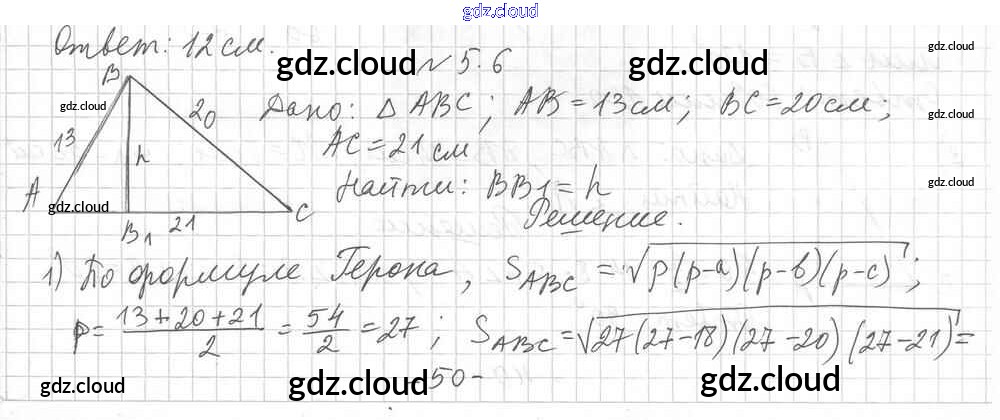 gdz.cloud
Ответ: 12 см.
gdz.cloud № 5.6 gdz.cloud gdz.cloud
B
gdz.cloud 20 Дано: △ ABC; AB = 13 см; BC = 20 см; gdz.cloud
13 h AC = 21 см
A Найти: BB₁ = h gdz.cloud
gdz.cloud C Решение.
B₁ 21
1) По формуле Герона, S_ABC = √p(p-a)(p-b)(p-c);
p = (13+20+21)/2 = 54/2 = 27; S_ABC = √27(27-18)(27-20)(27-21) =
gdz.cloud gdz.cloud -50- gdz.cloud gdz.cloud